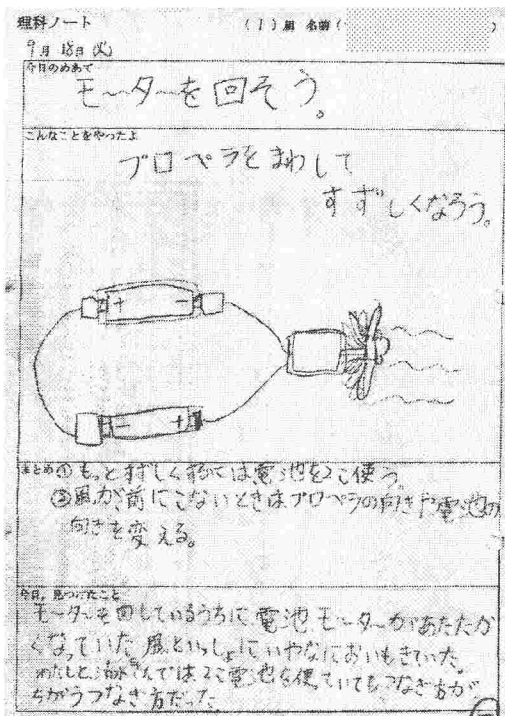 理科ノート (1)組 名前( )
9月18日(火)
今日のめあて
モーターを回そう。
こんなことをやったよ
プロペラをまわして
すずしくなろう。
+ −
− +
まとめ ① もっとすずしく 電池を2こ使う
②風が前にこないときはプロペラの向きや電池の
向きを変える。
今日,見つけたこと
モーターを回しているうちに電池モーターがあたたか
くなっていた 風といっしょにいやなにおいもきていた。
わたしと さんでは2こ電池を使っていてもつなぎ方が
ちがうつなぎ方だった